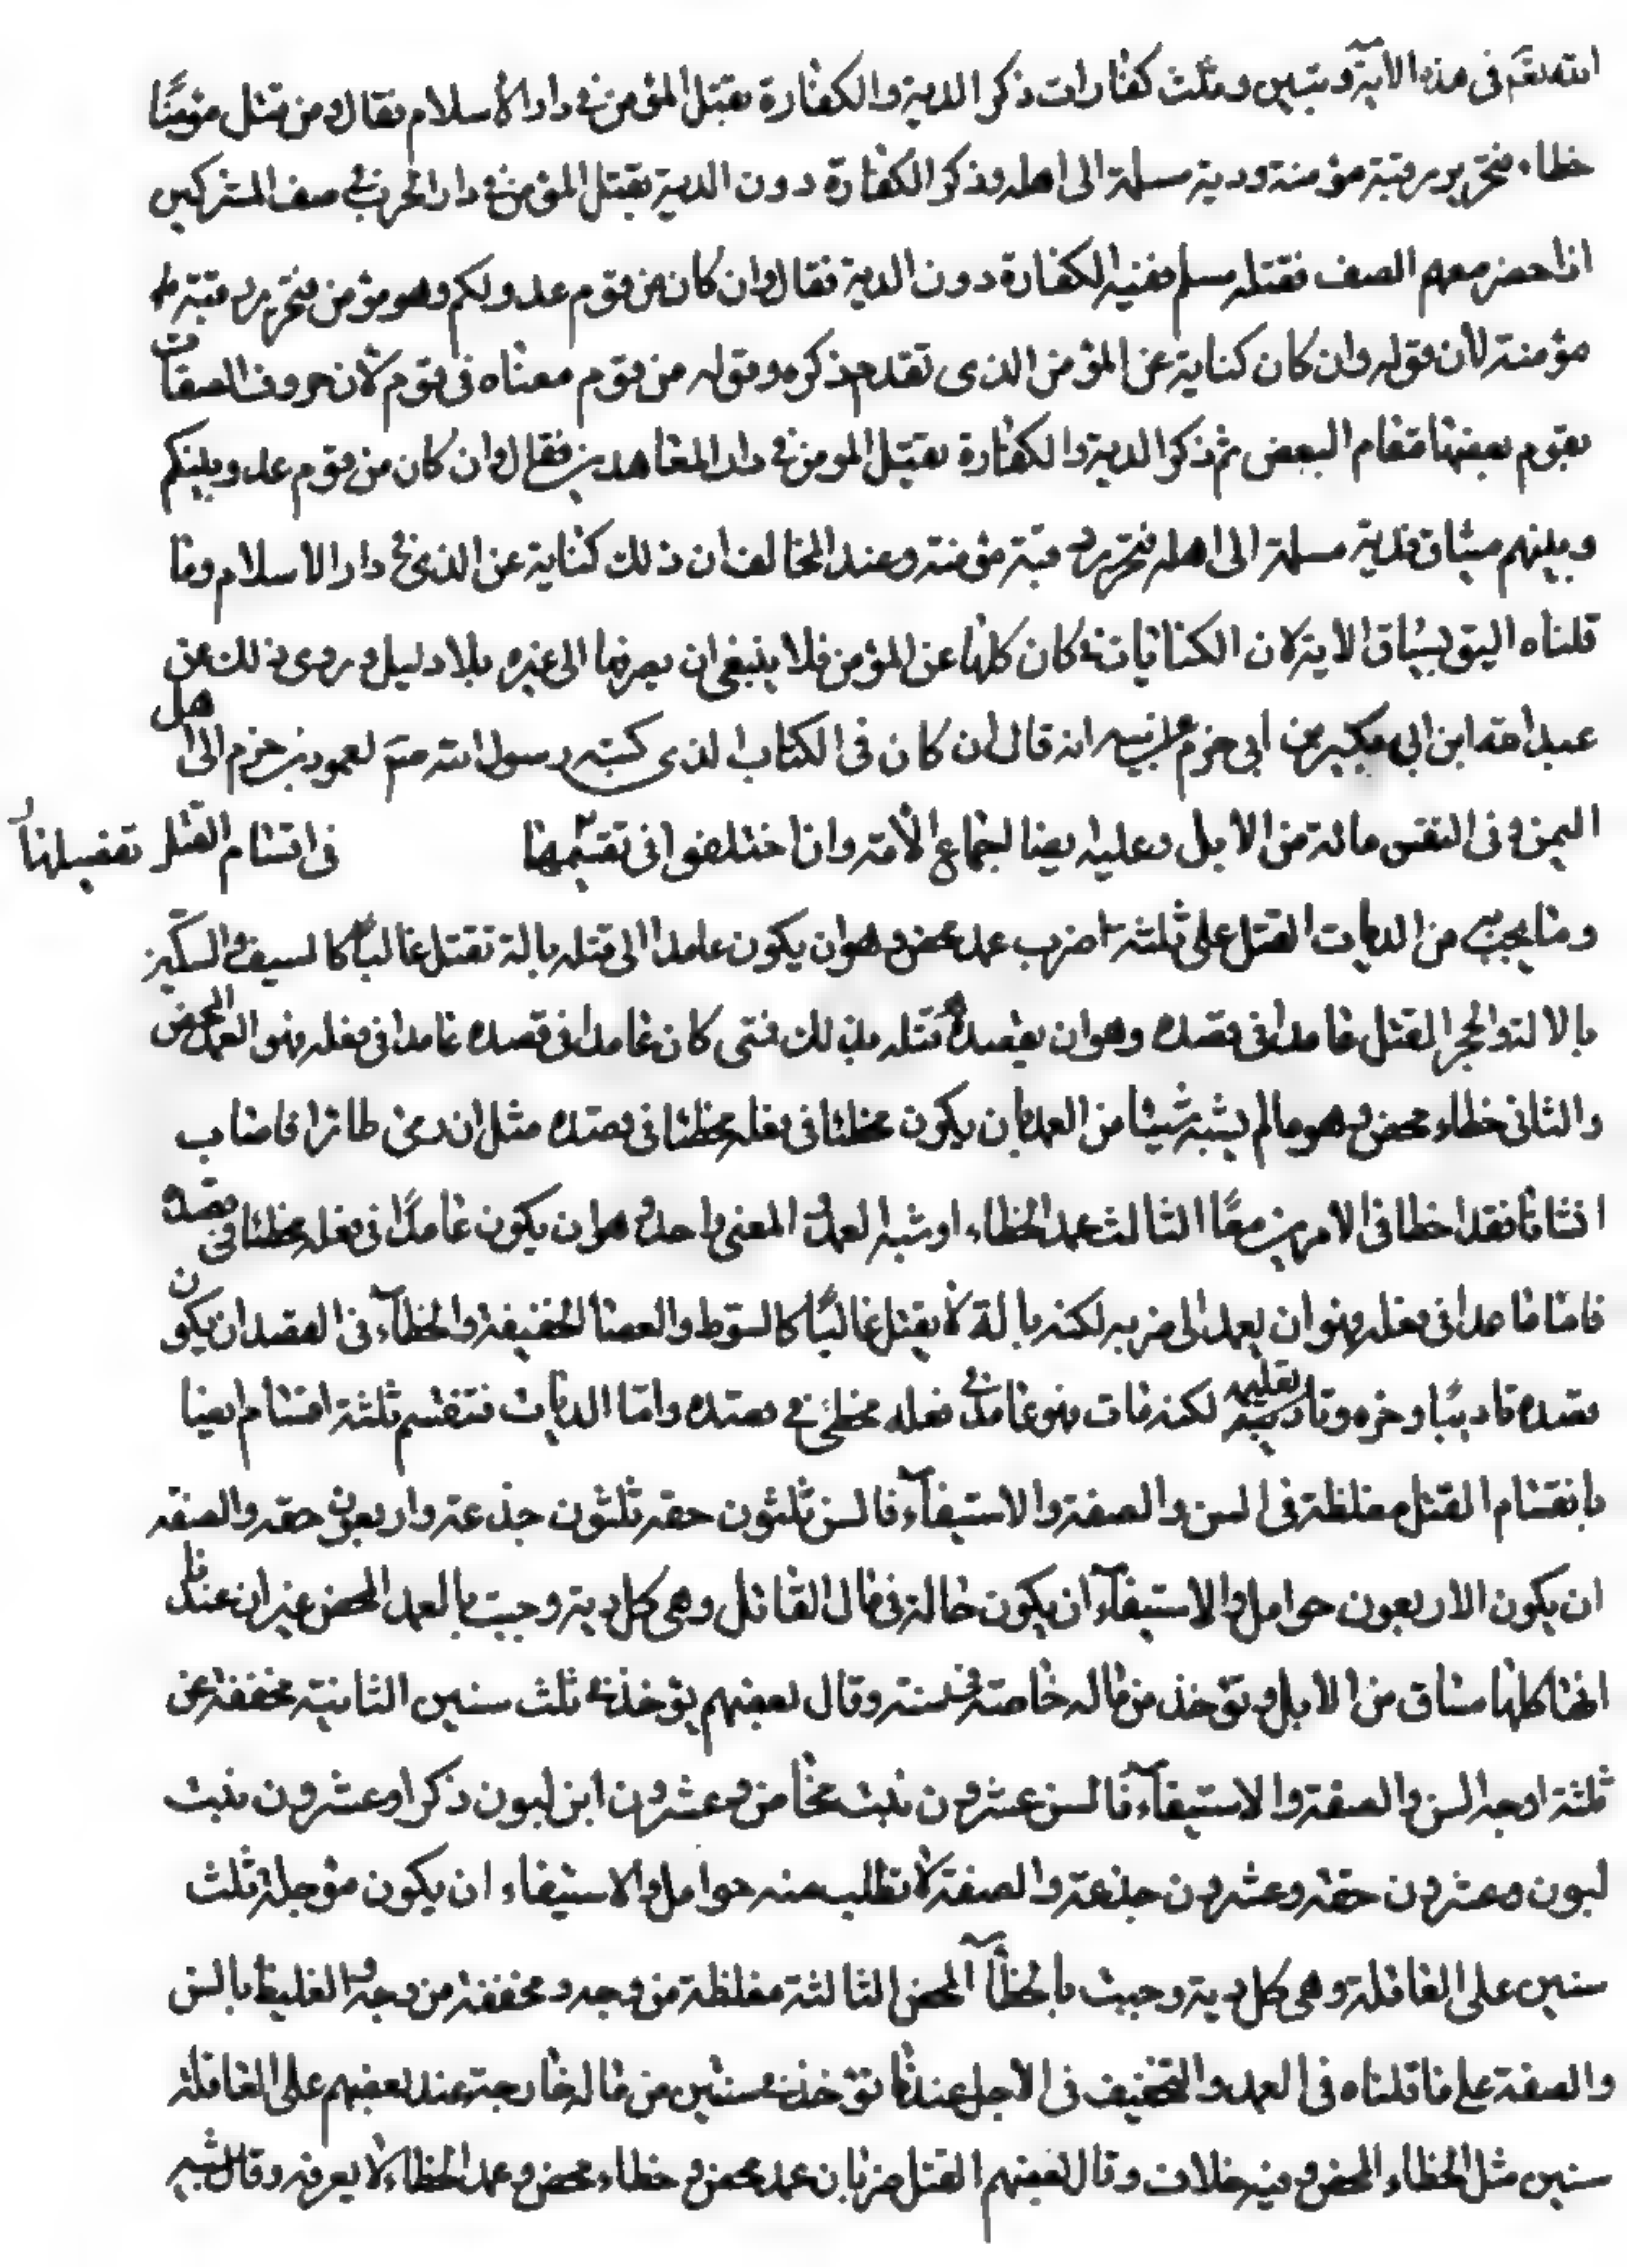 الله تعم فى هذه الآية ديتين وثلث كفارات ذكر الدية والكفارة بقتل المؤمن فى دار الاسلام فقال ومن قتل مؤمنًا
خطاء فتحرير رقبة مؤمنة ودية مسلمة الى اهله وذكر الكفارة دون الدية بقتل المؤمن فى دار الحرب فى صف المشركين
اذا حضر معهم الصف فقتله مسلم ففيه الكفارة دون الدية فقال وان كان من قوم عدو لكم وهو مؤمن فتحرير رقبة
مؤمنة لان قوله وان كان كناية عن المؤمن الذى تقدم ذكره وقوله من قوم معناه فى قوم لان حروف الصفات
يقوم بعضها مقام البعض ثم ذكر الدية والكفارة بقتل المومن فى دار المعاهدين فقال وان كان من قوم عدو بينكم
وبينهم ميثاق فدية مسلمة الى اهله فتحرير رقبة مؤمنة وعند المخالف ان ذلك كناية عن الذى فى دار الاسلام وما
قلناه اليق بسياق الاية لان الكنايات فى كان كلها عن المؤمن فلا ينبغى ان يصرفها الى غيره بلا دليل وروى ذلك عن
عبد الله ابن ابى بكير بن ابى حزم عن ابيه انه قال ان كان فى الكتاب الذى كتبه رسول الله صم لعمود بن حزم الى اهل
اليمن وفى النفس مائة من الابل وعليه ايضا اجماع الأمة وان اختلفوا فى تقسيمها فى اقسام القتل تفصيلها
وما يجب من الديات القتل على ثلثة اضرب عمد محض وهو ان يكون عامدا الى قتله بالة تقتل غالباً كالسيف والسكين
بالالة والحجر القتل عامدا فى قصده وهو ان يقصد قتله بذلك فمتى كان عامدا فى قصده عامدا فى فعله فهو العمد المحض
والثانى خطاء محض وهو ما لم يشبه شيئا من العمد بان يكون مخطئا فى فعله مخطئا فى قصده مثل ان رمى طائرا فاصاب
انسانا فقد اخطا فى الامرين معًا الثالث عمد الخطاء او شبه العمد والمعنى واحد وهو ان يكون عامدًا فى فعله مخطئا فى قصده
فاما عامدا فى فعله فهو ان يعمد الى ضربه لكنه بالة لا يقتل غالبًا كالسوط والعصا الخفيفة والخطآء فى القصد ان يكون
قصده تاديبًا وزجره وتاديبه تعليمه لكنه مات فهو عامد فى فعله مخطئ فى قصده واما الديات فتنقسم ثلثة اقسام ايضا
بانقسام القتل مغلظة فى السن والصفة والاستيفآء فالسن ثلثون حقه ثلثون جذعة واربعون حقه والصفة
ان يكون الاربعون حوامل والاستيفآء ان يكون حالة فى مال القاتل وهى كل دية وجبت بالعمد المحض غير ان عندنا
انها كلها مسان من الابل وتؤخذ من ماله خاصة فى سنة وقال بعضهم يؤخذ فى ثلث سنين الثانية مخففة عن
ثلثة اوجه السن والصفة والاستيفآء فالسن عشرون بنت مخاض وعشرون ابن لبون ذكرا وعشرون بنت
لبون وعشرون حقة وعشرون جذعة والصفة لا تطلب منه حوامل والاستيفاء ان يكون مؤجلة ثلث
سنين على العاقلة وهى كل دية وجبت بالخطآ المحض الثالثة مغلظة من وجه ومخففة من وجه والغليظ بالسن
والصفة على ما قلناه فى العمد والتخفيف فى الاجل عندنا تؤخذ فى سنتين من ماله خارجة عند بعضهم على العاقلة
سنين مثل الخطاء المحض وفيه خلاف وقال بعضهم القتل ضربان عمد محض وخطاء محض وعمد الخطاء لا يعرفه وقال شبه